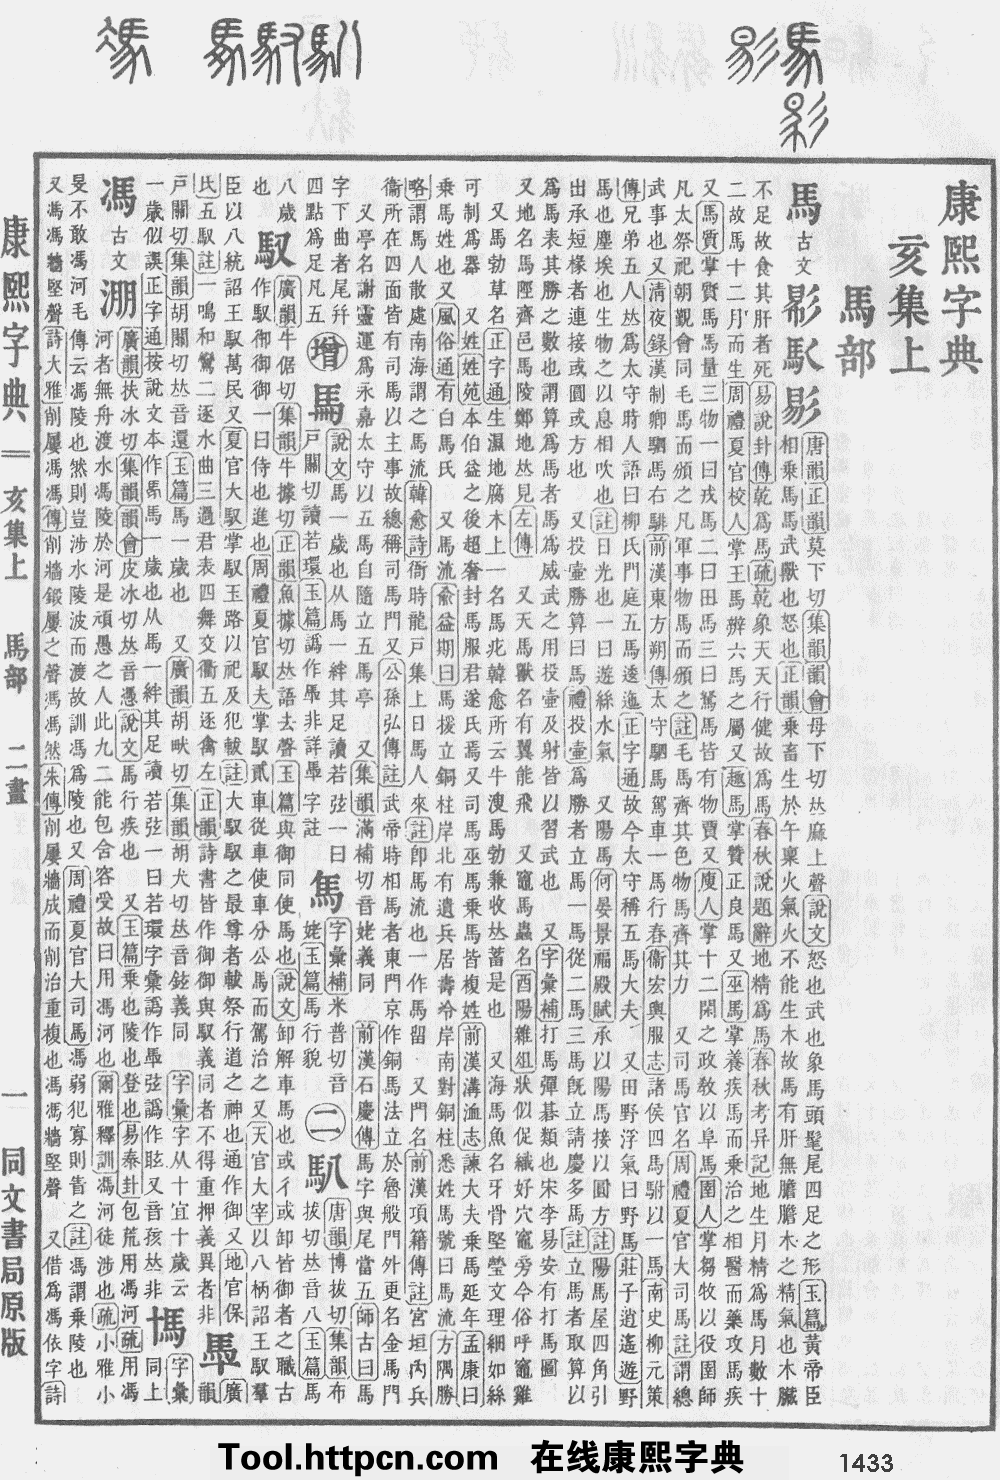 康熙字典
亥集上
馬部
馬 古文 影𢒗影
唐韻正韻莫下切集韻韻會母下切𠀤麻上聲說文怒也武也象馬頭髦尾四足之形玉篇黃帝臣
相乘馬馬武獸也怒也正韻乘畜生於午稟火氣火不能生木故馬有肝無膽膽木之精氣也木臟
不足故食其肝者死易說卦傳乾爲馬疏乾象天天行健故爲馬春秋說題辭地精爲馬春秋考异記地生月精爲馬月數十
二故馬十二月而生周禮夏官校人掌王馬辨六馬之屬又趣馬掌贊正良馬又巫馬掌養疾馬而乗治之相醫而藥攻馬疾
又馬質掌質馬馬量三物一曰戎馬二曰田馬三曰駑馬皆有物賈又廋人掌十二閑之政敎以阜馬圉人掌芻牧以役圉師
凡太祭祀朝覲會同毛馬而頒之凡軍事物馬而頒之註毛馬齊其色物馬齊其力　又司馬官名周禮夏官大司馬註謂總
武事也又淸夜錄漢制卿駟馬右騑前漢東方朔傳太守駟馬駕車一馬行春衞宏輿服志諸侯四馬駙以一馬南史柳元策
傳兄弟五人𠀤爲太守時人語曰柳氏門庭五馬逶迤正字通故今太守稱五馬大夫　又田野浮氣曰野馬莊子逍遙遊野
馬也塵埃也生物之以息相吹也註日光也一曰遊絲水氣　又陽馬何晏景福殿賦承以陽馬接以圓方註陽馬屋四角引
出承短椽者連接或圓或方也　又投壺勝算曰馬禮投壺爲勝者立馬一馬從二馬三馬旣立請慶多馬註立馬者取算以
爲馬表其勝之數也謂算爲馬者馬爲威武之用投壺及射皆以習武也　又字彙補打馬彈棊類也宋李易安有打馬圖
又地名馬陘齊邑馬陵鄭地𠀤見左傳　又天馬獸名有翼能飛　又竈馬蟲名酉陽雜俎狀似促織好穴竈旁今俗呼竈雞
又馬勃草名正字通生濕地腐木上一名馬疕韓愈所云牛溲馬勃兼收𠀤蓄是也　又海馬魚名牙骨堅瑩文理細如絲
可制爲器　又姓姓苑本伯益之後趙奢封馬服君遂氏焉又司馬巫馬乘馬皆複姓前漢溝洫志諫大夫乘馬延年孟康曰
乘馬姓也又風俗通有白馬氏　又馬流兪益期曰馬援立銅柱岸北有遺兵居壽泠岸南對銅柱悉姓馬號曰馬流方隅勝
略謂馬人散處南海謂之馬流韓愈詩衙時龍戸集上日馬人來註卽馬流也一作馬留　又門名前漢項籍傳註宮垣內兵
衞所在四面皆有司馬以主事故總稱司馬門又公孫弘傳註武帝時相馬者東門京作銅馬法立於魯般門外更名金馬門
又亭名謝靈運爲永嘉太守以五馬自隨立五馬亭　又集韻滿補切音姥義同　前漢石慶傳馬字與尾當五師古曰馬
字下曲者尾幷
四點爲足凡五
增
馬
說文馬一歲也从馬一絆其足讀若弦一曰
戸關切讀若環玉篇譌作馽非詳馽字註
馬
字彙補米普切音
姥玉篇馬行貌
二
馴
唐韻博拔切集韻布
拔切𠀤音八玉篇馬
八歲
也
馭
廣韻牛倨切集韻牛據切正韻魚據切𠀤語去聲玉篇與御同使馬也說文卸解車馬也或彳或卸皆御者之職古
作馭御御御一曰侍也進也周禮夏官馭夫掌馭貳車從車使車分公馬而駕治之又天官大宰以八柄詔王馭羣
臣以八統詔王馭萬民又夏官大馭掌馭玉路以祀及犯軷註大馭馭之最尊者軷祭行道之神也通作御又地官保
氏五馭註一鳴和鸞二逐水曲三過君表四舞交衢五逐禽左正韻詩書皆作御御與馭義同者不得重押義異者非
馽
廣
韻
戸關切集韻胡關切𠀤音還玉篇馬一歲也　又廣韻胡畎切集韻胡犬切𠀤音鉉義同　字彙字从十宜十歲云
一歲似誤正字通按說文本作馬馬一歲也从馬一絆其足讀若弦一曰若環字彙譌作馽弦譌作眩又音孩𠀤非
䭴
字彙
同上
馮 古文 淜
廣韻扶冰切集韻韻會皮冰切𠀤音憑說文馬行疾也　又玉篇乗也陵也登也易泰卦包荒用馮河疏用馮
河者無舟渡水馮陵於河是頑愚之人此九二能包含容受故曰用馮河也爾雅釋訓馮河徒涉也疏小雅小
旻不敢馮河毛傳云馮陵也然則豈涉水陵波而渡故訓馮爲陵也又周禮夏官大司馬馮弱犯寡則眚之註馮謂乘陵也
又馮馮牆堅聲詩大雅削屢馮馮傳削牆鍛屢之聲馮馮然朱傳削屢牆成而削治重複也馮馮牆堅聲　又借爲馮依字詩
康熙字典
亥集上
馬部
二畫
一
同文書局原版
Tool.httpcn.com 在线康熙字典
1433